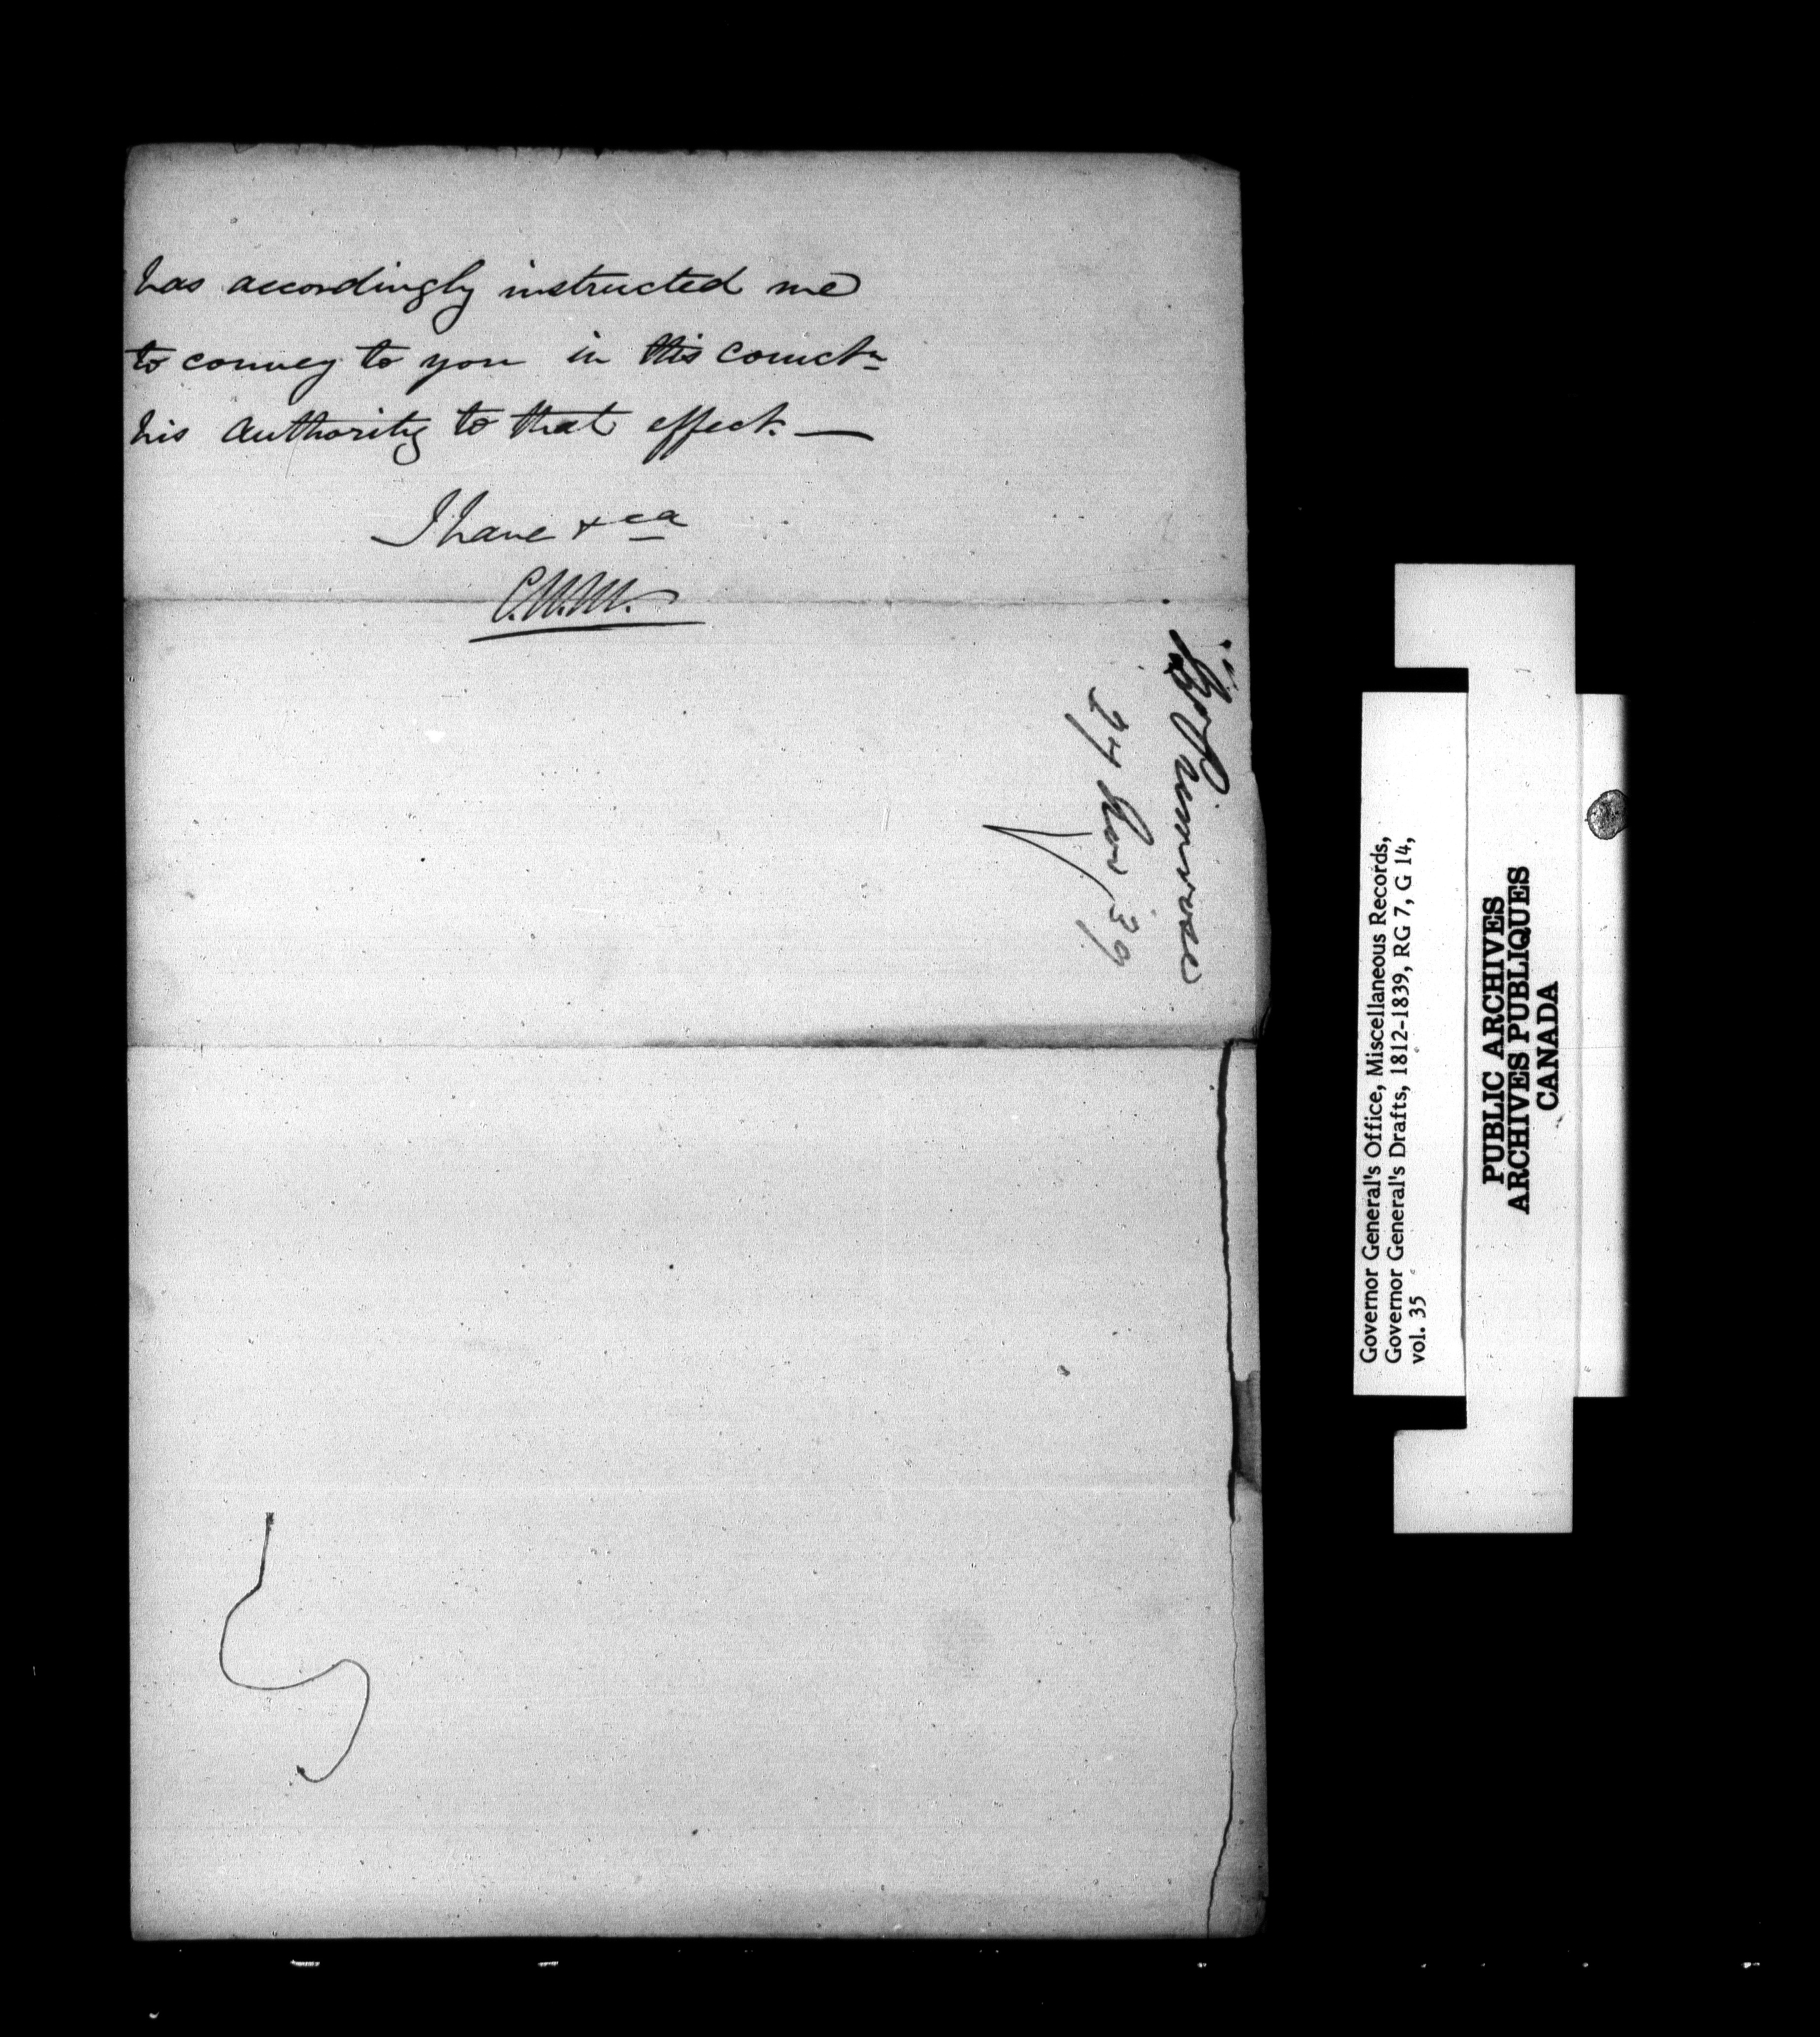 has accordingly instructed me
to convey to you in this connectn
his authority to that effect. —
I have &ca
C.W.M.
24 Nov 39
Governor General's Office, Miscellaneous Records,
Governor General's Drafts, 1812-1839, RG 7, G 14,
vol. 35
PUBLIC ARCHIVES
ARCHIVES PUBLIQUES
CANADA